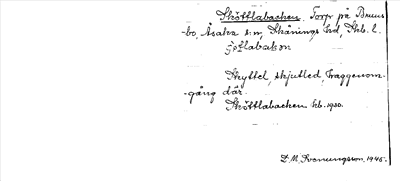 Sköttlabacken. Torp på Bruns-
bo, Åsaka sn, Skånings hd, Skb. l.
Skyttel, skjutled, traggenom-
gång där.
Sköttlabacken hb. 1930.
D. M. Svenungsson, 1945.